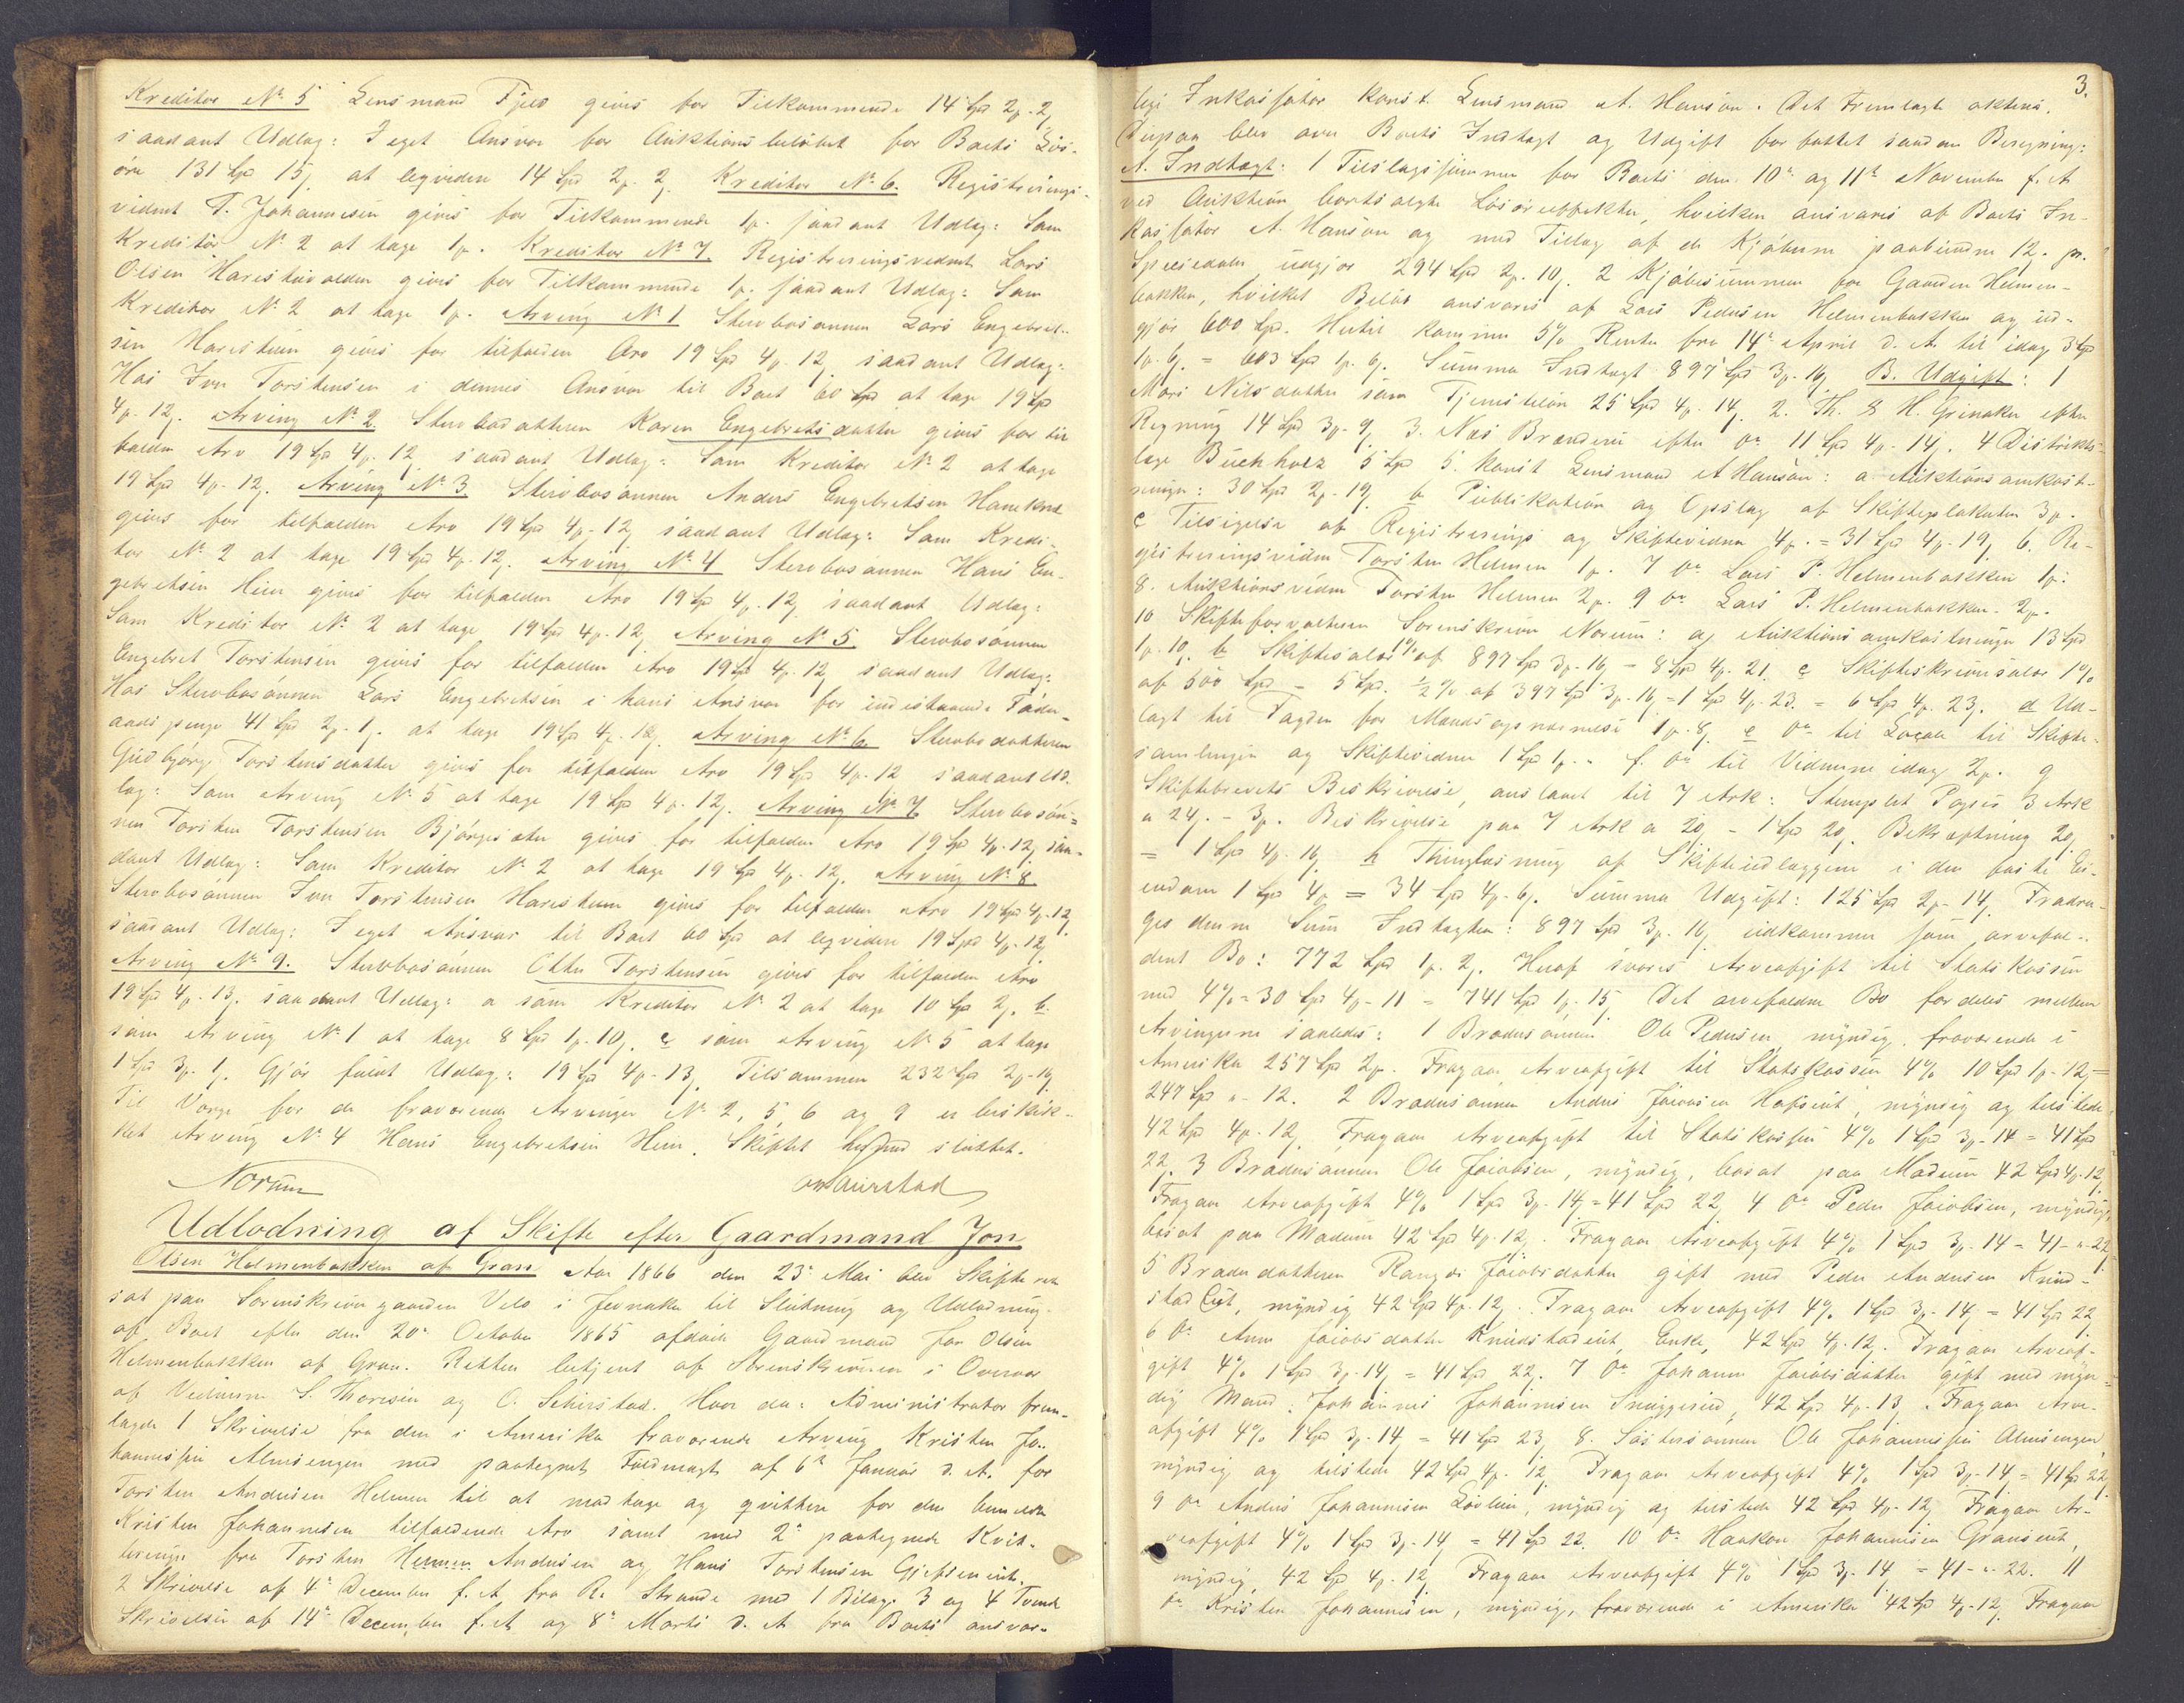 Kreditor No 5 Lensmand Fjeld gives for Tilkommende 14 Spd 2 p. 2 s
saadant Udlag: I eget Ansvar for Auktionsbeløbet for Boets Løs-
øre 131 Spd 15 s at legvidere 14 Spd 2 p. 2 s. Kreditor No 6. Registrerings-
vidnet T. Johannesen gives for Tilkommende 1 p. saadant Udlag: Som
Kreditor No 2 at tage 1 p. Kreditor No 7. Registreringsvidnet Lars
Olsen Harestuvolden gives for Tilkommende 1 p. saadant Udlag: Som
Kreditor No 2 at tage 1 p. Arving No 1 Stervbosønnen Lars Engebret-
sen Harestuen gives for tilfalden Arv 19 Spd 4 p. 12 s saadant Udlag:
Hos Iver Torstensen i dennes Ansvar til Boet 60 Spd at tage 19 Spd
4 p. 12 s. Arving No 2. Stervbodatteren Karen Engebretsdatter gives for til-
falden Arv 19 Spd 4 p. 12 saadant Udlag: Som Kreditor No 2 at tage
19 Spd 4 p. 12 s. Arving No 3 Stervbosønnen Anders Engebretsen
gives for tilfalden Arv 19 Spd 4 p. 12 saadant Udlag: Som Kredi-
tor No 2 at tage 19 Spd 4 p. 12 s. Arving No 4 Stervbosønnen Hans En-
gebretsen Hem gives for tilfalden Arv 19 Spd 4 p. 12 s saadant Udlag:
Som Kreditor No 2 at tage 19 Spd 4 p. 12 s Arving No 5. Stervbosønnen
Engebret Torstensen gives for tilfalden Arv 19 Spd 4 p. 12 saadant Udlag:
Hos Stervbosønnen Lars Engebretsen i hans Ansvar for indestaaende Føde-
raadspenge 41 Spd 2 p. 1 s. at tage 19 Spd 4 p. 12 s. Arving No 6. Stervbodatteren
Gudbjørg Torstensdatter gives for tilfalden Arv 19 Spd 4 p. 12 saadant Ud-
lag: Som Arving No 5 at tage 19 Spd 4 p. 12 s. Arving No 7 Stervbosøn-
nen Torsten Torstensen Bjørgesæter gives for tilfalden Arv 19 Spd 4 p. 12 s saa-
dant Udlag: Som Kreditor No 2 at tage 19 Spd 4 p. 12 s. Arving No 8.
Stervbosønnen Iver Torstensen Harestuen gives for tilfalden Arv 19 Spd 4 p. 12 s
saadant Udlag: I eget Ansvar til Boet 60 Spd at legvidere 19 Spd 4 p. 12 s
Arving No 9. Stervbosønnen Otter Torstensen gives for tilfalden Arv
19 Spd 4 p. 13 s. saadant Udlag: a som Kreditor No 2 at tage 10 Spd 2 s. b.
som Arving No 1 at tage 8 Spd 1 p. 10 s. c som Arving No 5 at tage
1 Spd 3 p. 1 s. Gjør fuldt Udlag: 19 Spd 4 p. 13 s Tilsammen 232 Spd 2 p. 14 s
Til Værge for de fraværende Arvinger No 2, 5 6 og 9 er beskik-
ket Arving No 4 Hans Engebretsen Hem. Skiftet hermed sluttet.
Norum
Udlodning af Skifte efter Gaardmand Jon
Olsen Helmenbakken af Gran Aar 1866 den 23de Mai blev Skifteret
sat paa Sorenskrivergaarden Velo i Jevnaker til Slutning og Udlodning
af Boet efter den 20de October 1865 afdøde Gaardmand Jon Olsen
Helmenbakken af Gran. Retten betjent af Sorenskriveren i Overvær
af Vidnerne S. Thoresen og O. Schirstad. Hvor da: Administrator frem-
lagde 1 Skrivelse fra den i Amerika fraværende Arving Kristen Jo-
hannessen Almsengen med paategnet Fuldmagt af 6te Januar d. A. for
Torsten Andersen Helmen til at modtage og qvittere for den bemeldte
Kristen Johannesen tilfaldende Arv samt med 2de paategnede Kvit-
teringer fra Torsten Helmen Andersen og Hans Torstensen Gjefsen eie.
2 Skrivelse af 4de December f. A. fra R. Strande med 1 Bilag. 3 og 4 Tvende
Skrivelser af 14de December f. A. og 8de Marts d. A. fra Boets ansvar-
3.
lige Inkassator konst. Lensmand A. Hansen. Det Fremlagte akteres.
Derpaa blev over Boets Indtægt og Udgift forfattet saadan Beregning:
A. Indtægt: 1 Tilslagssummen for Boets den 10de og 11te November f. A.
ved Auktion bortsolgte Løsøreeffekter, hvilken ansvares af Boets In-
kassator A. Hansen og med Tillæg af de Kjøberne paabudne 12 s. pr.
Speciedaler udgjør 294 Spd 2 p. 10 s. 2 Kjøbesummen for Gaarden Helmen-
bakken, hvilket Beløb ansvares af Lars Pedersen Helmenbakken og ud-
gjør 600 Spd. Hertil kommer 5% Renter fra 14de April d. A. til idag 3 Spd
1 p. 6 s. = 603 Spd 1 p. 6 s. Summa Indtægt 897 Spd 3 p. 16 s B. Udgift: 1
Mari Nilsdatter som Tjenesteløn 25 Spd 4 p. 14 s. 2. Th. & H. Grinaker efter
Regning 14 Spd 3 p. 9 s. 3. Næs Brænderi efter do 11 Spd 4 p. 14 s. 4 Distrikts-
læge Buchholz 5 Spd 5. konst Lensmand A Hansen: a Auktionsomkost-
ninger: 30 Spd 2 p. 19 s b Publikation og Opslag af Skifteplakaten 3 p.
c Tilsigelse af Registrerings og Skiftevidner 4 p. = 31 Spd 4 p. 19 s. 6. Re-
gistreringsvidnet Torsten Helmen 1 p. 7 do Lars P. Helmenbakken 1 p.
8. Auktionsvidnet Torsten Helmen 2 p. 9 do Lars P. Helmenbakken. 2 p.
10 Skifteforvalteren Sorenskriver Norum: a Auktionsomkostninger 13 Spd
1 p. 10. b Skiftesalær 1% af 897 Spd 3 p. 16 s - 8 Spd 4 p. 21. c Skifteskriversalær 1%
af 500 Spd - 5 Spd. ½% af 397 Spd 3 p. 16 s = 1 Spd 4 p. 23. = 6 Spd 4 p. 23 s. d Ud-
lagt til Fogden for Mandsopnævnelse 1 p. 8 s. e do til Locale til Skifte-
samlingen og Skiftevidner 1 Spd 1 p. f. do til Vidnerne idag 2 p. g
Skiftebrevets Beskrivelse, anslaaet til 7 Ark: Stemplet Papir 3 Ark
a 24 s. - 3 p. Beskrivelse paa 7 Ark a 20 s - 1 Spd 20 s. Bekræftning 20 s
= 1 Spd 4 p. 16 s h Thinglæsning af Skifteudlæggene i den faste Ei-
endom 1 Spd 4 p = 34 Spd 4 p. 6 s. Summa Udgift: 125 Spd 2 p. 14 s. Fradra-
ges denne Sum Indtægten: 897 Spd 3 p. 16 s udkommer som arvefal-
dent Bo: 772 Spd 1 p. 2 s. Heraf svares Arveafgift til Statskassen
med 4% = 30 Spd 4 p. 11 = 741 Spd 1 p. 15 s. Det arvefaldne Bo fordeles mellem
Arvingerne saaledes: 1 Brodersønnen Ole Pedersen, myndig, fraværende i
Amerika 257 Spd 2 p. Fragaar Arveafgift til Statskassen 4% 10 Spd 1 p. 12 s =
247 Spd „ - 12. 2 Brodersønnen Anders Jacobsen, myndig og tilstede
42 Spd 4 p. 12 s. Fragaar Arveafgift til Statskassen 4% 1 Spd 3 p. 14 = 41 Spd
22 s. 3 Brodersønnen Ole Jacobsen, myndig, bosat paa Madum 42 Spd 4 p. 12 s
Fragaar Arveafgift 4% 1 Spd 3 p. 14 s = 41 Spd 22 s 4 do Peder Jacobsen, myndig,
bosat paa Madum 42 Spd 4 p. 12 s. Fragaar Arveafgift 4% 1 Spd 3 p. 14 - 41 - „ - 22 s
5 Broderdatteren Rangdi Jacobsdatter gift med Peder Andersen Knud-
stad Eiet, myndig 42 Spd 4 p. 12 s. Fragaar Arveafgift 4% 1 Spd 3 p. 14 s = 41 Spd 22 s
6 do Anne Jacobsdatter Knudstadeiet, Enke, 42 Spd 4 p. 12. Fragaar Arveaf-
gift 4% 1 Spd 3 p. 14 s = 41 Spd 22 s. 7 do Johanne Jacobsdatter gift med myn-
dig Mand Johannes Johannesen, 42 Spd 4 p. 13 s. Fragaar Arve-
afgift 4% 1 Spd 3 p. 14 s = 41 Spd 23 s 8. Søstersønnen Ole Johannessen Almsengen,
myndig og tilstede 42 Spd 4 p. 12 Fragaar Arveafgift 4% 1 Spd 3 p. 14 s = 41 Spd 22 s
9 do Anders Johannesen Løvlien, myndig og tilstede 42 Spd 4 p. 12 s Fragaar Ar-
veafgift 4% 1 Spd 3 p. 14 s = 41 Spd 22. 10 do Haakon Johannesen Granseiet,
myndig, 42 Spd 4 p. 12 s Fragaar Arveafgift 4% 1 Spd 3 p. 14 = 41 - „ - 22. 11
do Kristen Johannesen, myndig, fraværende i Amerika 42 Spd 4 p. 12 s Fragaar